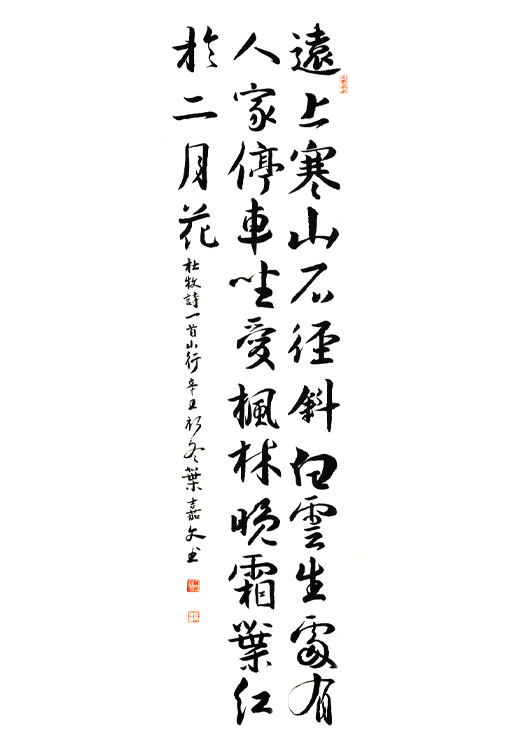 遠上寒山石徑斜白雲生處有
人家停車坐愛楓林晚霜葉紅
於二月花
杜牧詩一首山行辛丑初冬葉嘉文書